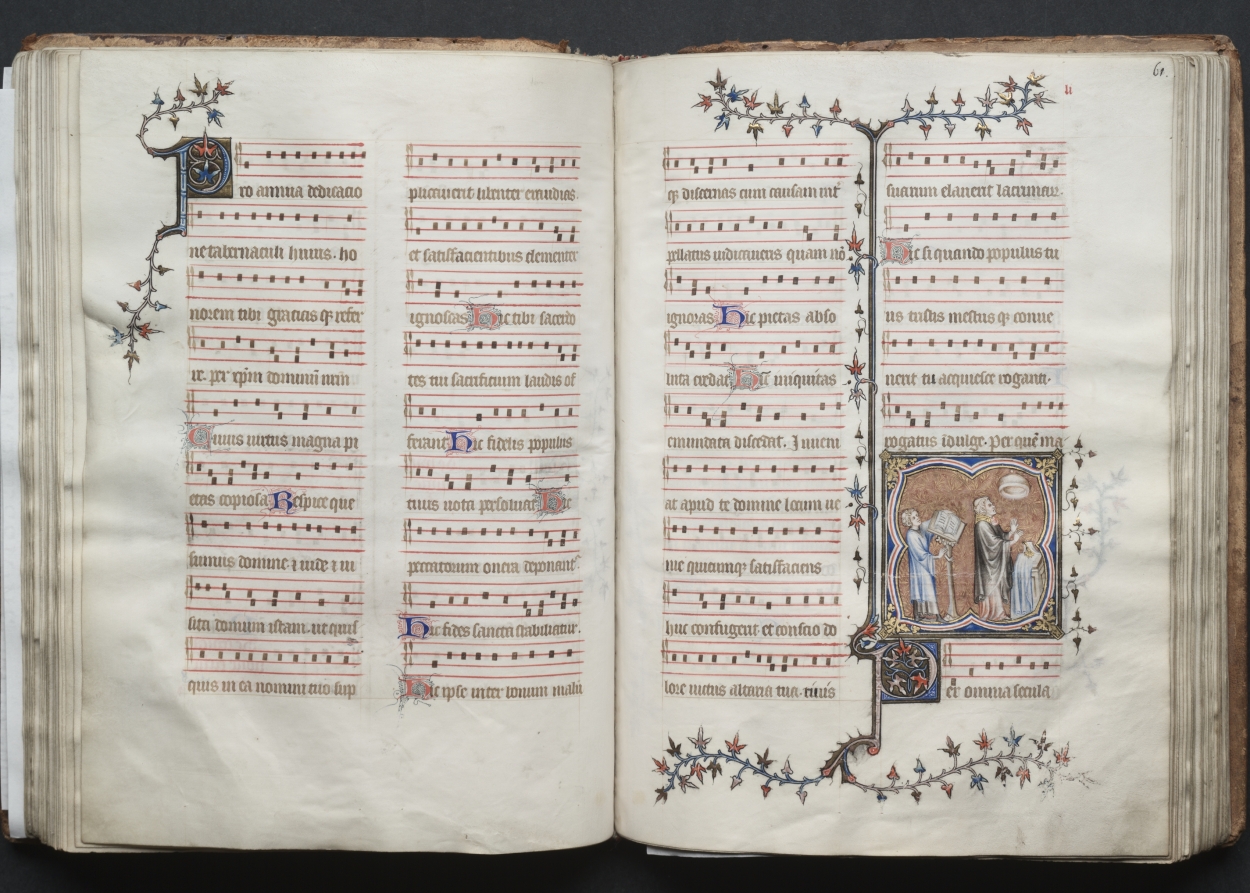 Pro annua dedicatio
ne tabernaculi huius. ho
norem tibi gratias qȝ refer
re. per xp̄m dominū nrm̄
Cuius uirtus magna pi
etas copiosa Respice que
sumus domine ⁊ uide ⁊ ui
sita domum istam. ut quis
quis in ea nomini tuo sup
plicauerit libenter exaudias.
et satisfacientibus clementer
ignoscas Hic tibi sacerdo
tes tui sacrificium laudis of
ferant Hic fidelis populus
tuus uota persoluat Hic
peccatorum onera deponant᷑
Hic fides sancta stabiliatur
Hic ipse inter bonum malū
qȝ discernas cum causam int̄
pellatus iudicaueris quam nō
ignoras Hic pietas abso
luta cedat Hic iniquitas
emundata discedat. Inueni
at apud te domine locum ue
nie quicumqȝ satisfaciens
huc confugerit et conscio do
lore uictus altaria tua riuis
suarum elauerit lacrimar.
Hic si quando populus tu
us tristis mestus qȝ conue
nerit tu acquiesce rogari.
rogatus īdulge. Per quē ma
Per omnia secula
61.